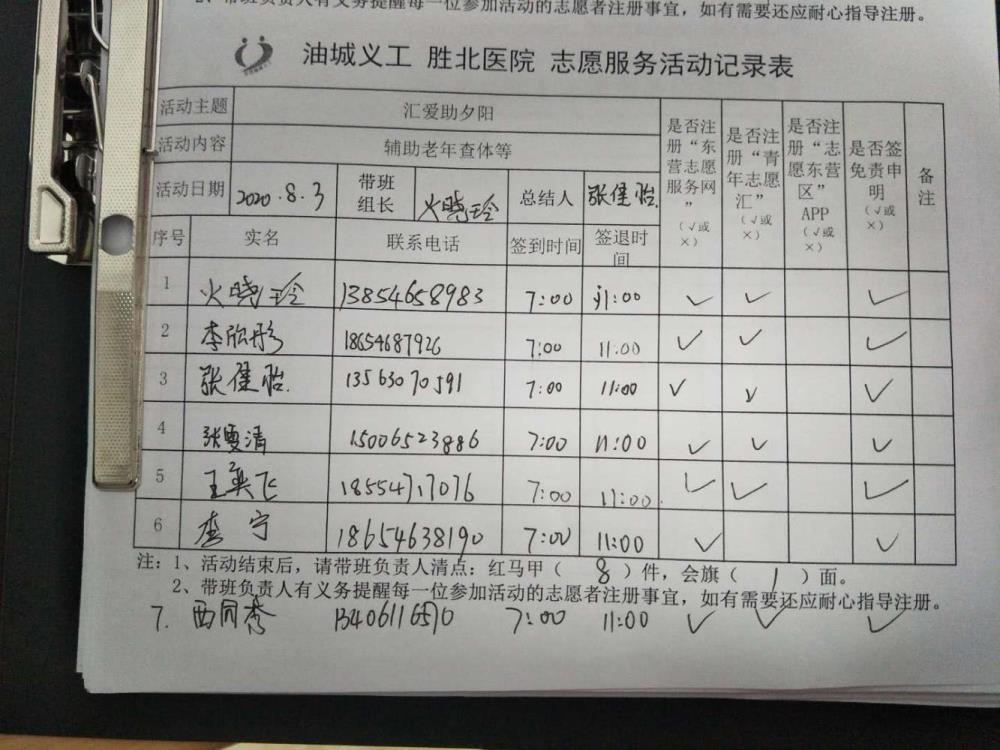 2、带班负责人有义务提醒每一位参加活动的志愿者注册事宜，如有需要还应耐心指导注册。
油城义工 胜北医院 志愿服务活动记录表
活动主题 汇爱助夕阳 是否注册“东营志愿服务网”（√或×） 是否注册“青年志愿汇”（√或×） 是否注册“志愿东营区”APP（√或×） 是否签免责申明（√或×） 备注
活动内容 辅助老年查体等
活动日期 2020.8.3 带班组长 火晓玲 总结人 张健怡
序号 实名 联系电话 签到时间 签退时间
1 火晓玲 13854658983 7:00 11:00 √ √ √
2 李欣彤 18654687926 7:00 11:00 √ √ √
3 张健怡 13563070591 7:00 11:00 √ √ √
4 张雯清 15006523886 7:00 11:00 √ √ √
5 王奕飞 18554717076 7:00 11:00 √ √ √
6 李宁 18654638190 7:00 11:00 √ √
注：1、活动结束后，请带班负责人清点：红马甲（8）件，会旗（1）面。
2、带班负责人有义务提醒每一位参加活动的志愿者注册事宜，如有需要还应耐心指导注册。
7. 西同秀 13406116510 7:00 11:00 √ √ √